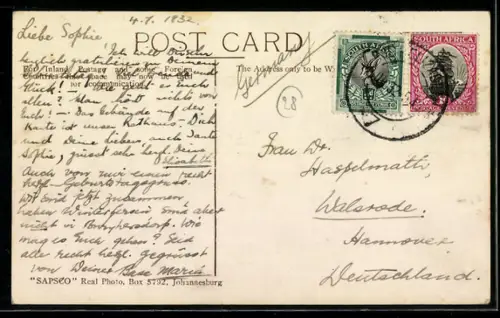 4.7. 1932
Liebe Sophie!
POST CARD
For Inland Postage and some Foreign
Countries this space may now be used
for communication.
The Address only to be
Germany
SOUTH AFRICA
28
Ich will Dir
herzlich gratulieren zu Deinem
und
Glück! es Euch
allen? Man hört nichts von
Euch! — Das Gebäude auf der
Karte ist unser Rathaus. Dich
und Deine lieben, auch Tante
Sophie, grüsst sehr herzl. Deine
Elisabeth
Auch von mir einen recht
herzl. Geburtstagsgruss.
Wir sind jetzt zusammen,
haben Winterferien sind aber
nicht in Wie
mag es Euch gehen? Seid
alle recht herzl. gegrüsst
von Deiner Base Maria
Frau Dr.
Hasselmath,
Walsrode.
Hannover.
Deutschland.
"SAPSCO" Real Photo, Box 5792, Johannesburg